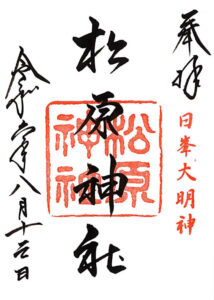 奉拝
日峯大明神
松原神社
松原神社
令和六年八月十三日